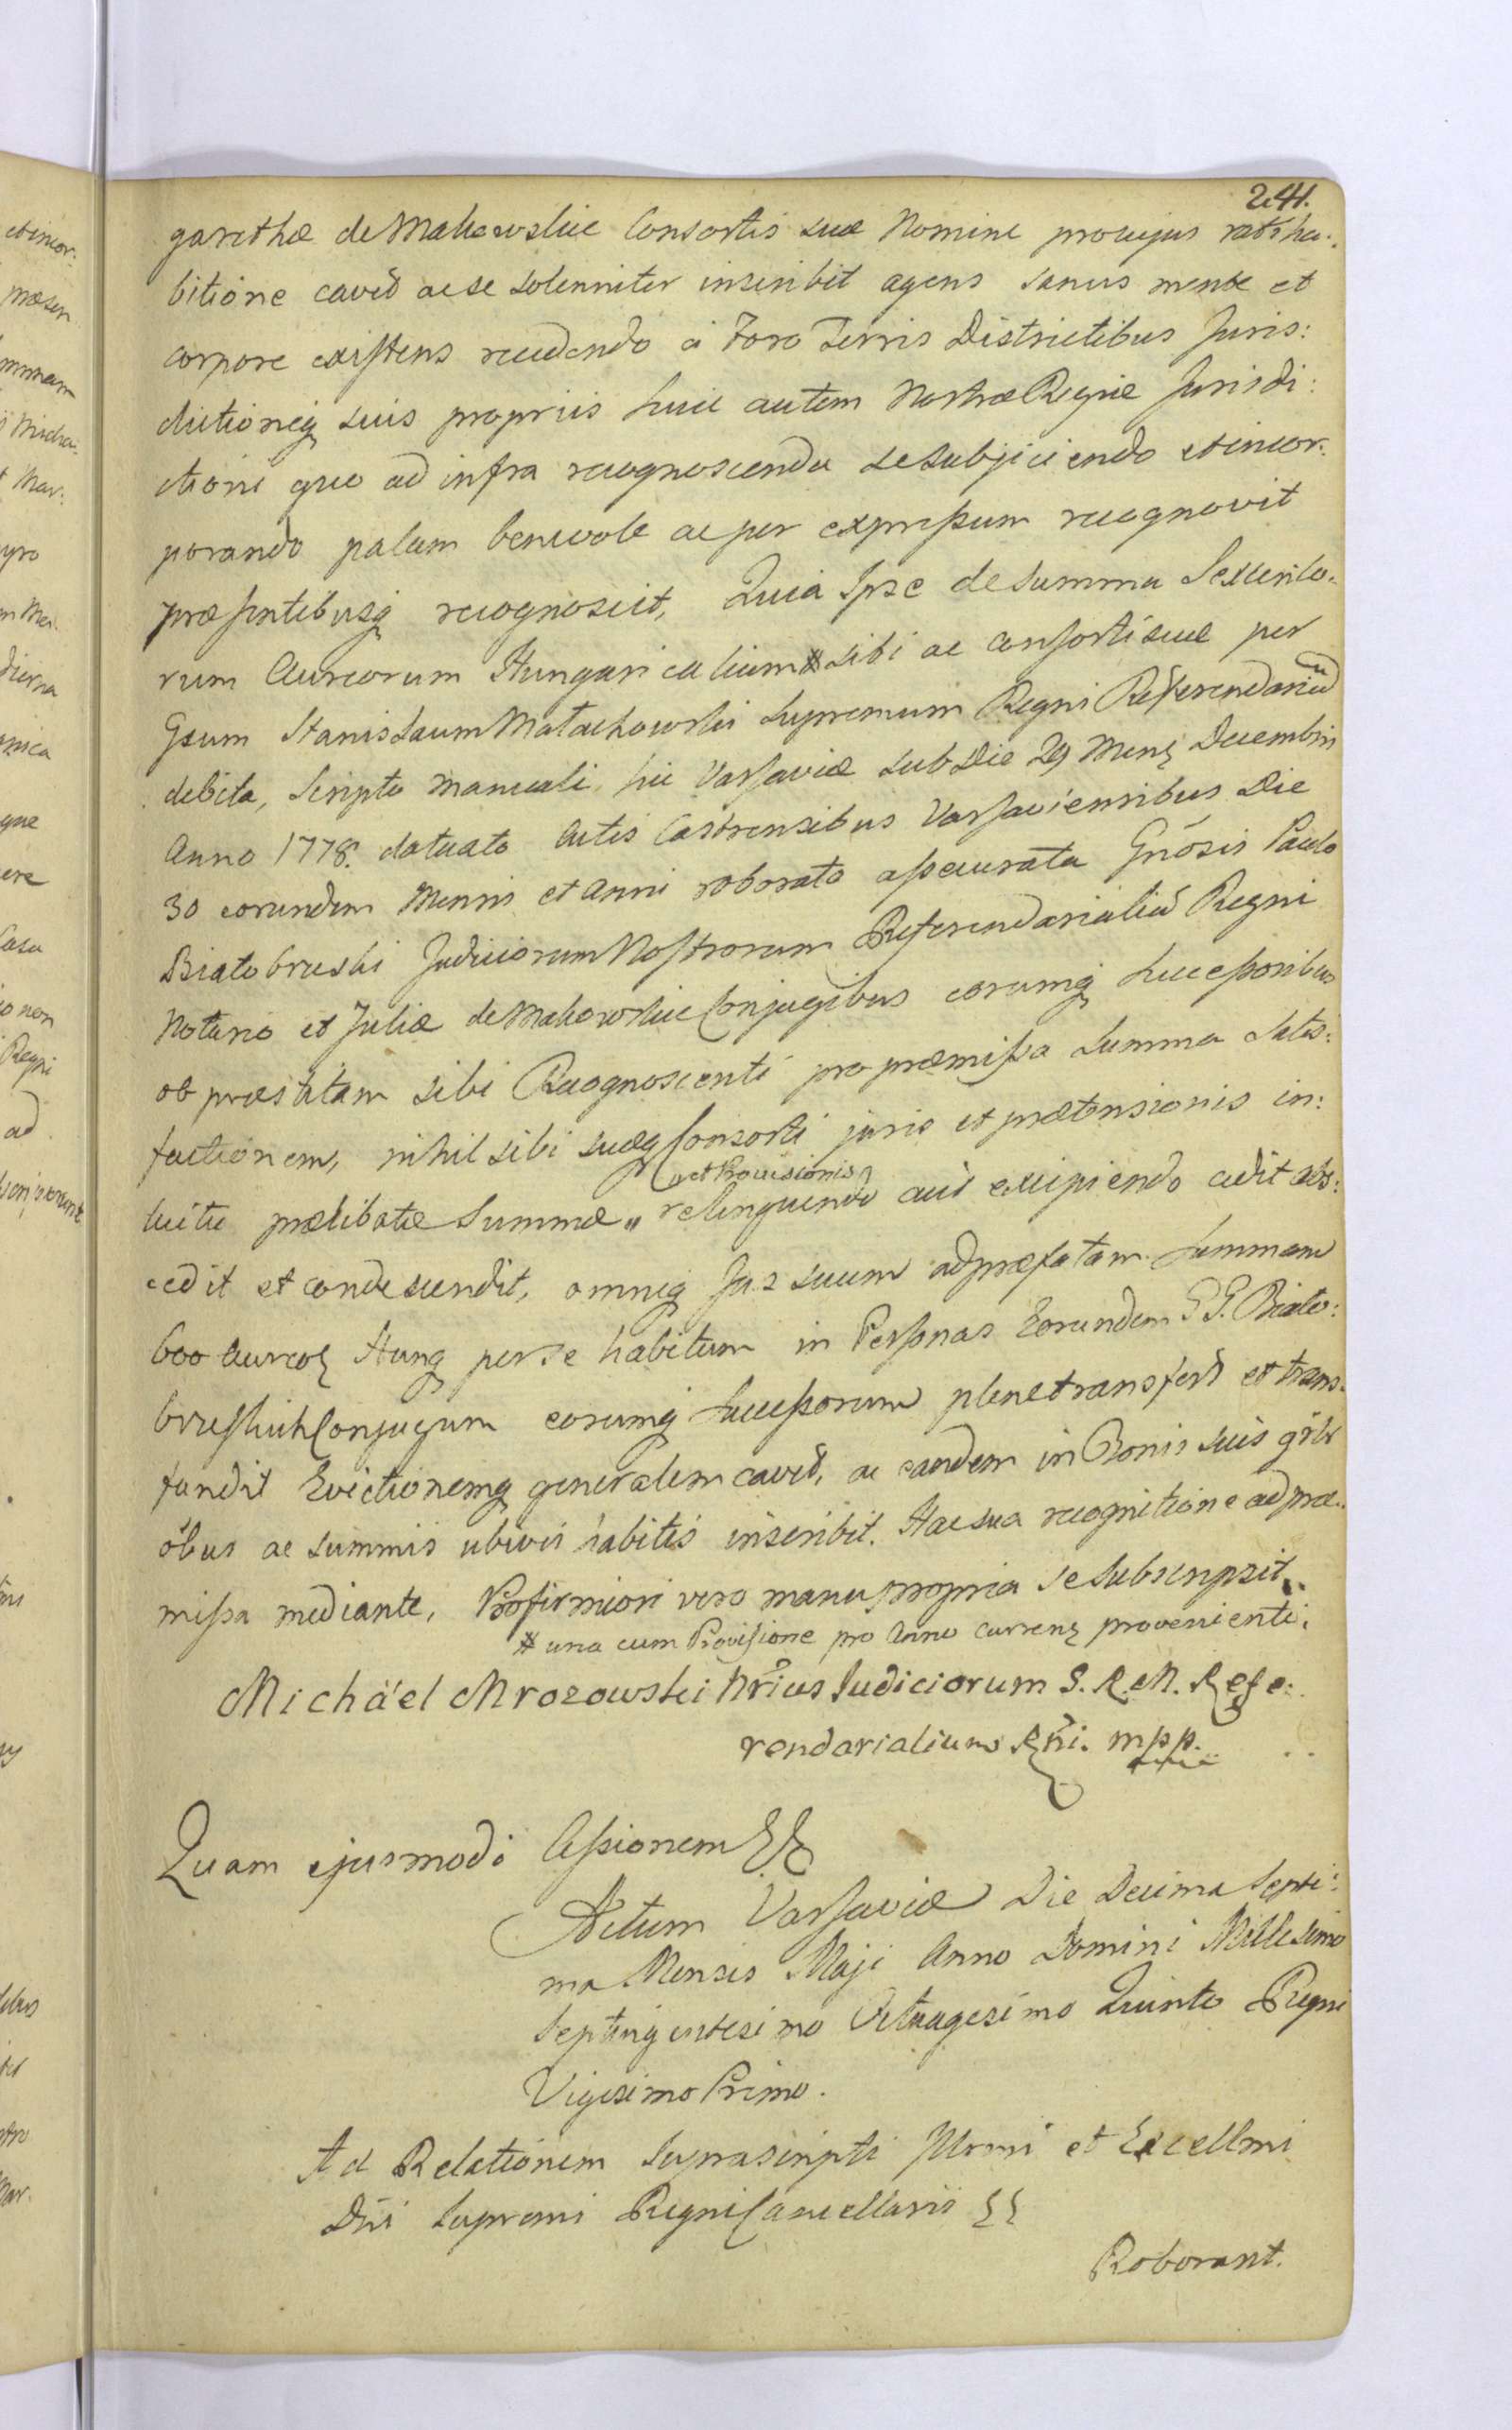 241.
garethæ de Makowskie Consortis suæ Nomine pro cujus ratiha:
bitione cavet ac se solenniter inscribit agens sanus mente et
corpore existens recedendo a Foro Terris Districtibus Juris:
dictioneq suis propriis huic autem Nostræ Regiæ Jurisdi:
ctioni quo ad infra recognoscenda se subjiciendo et incor:
porando palam benevole ac per expressum recognovit
præsentibusq recognoscit, Quia Ipse de Summa Sexcento:
rum Aureorum Hungaricalium # sibi ac consorti suæ per
Gsum Stanislaum Małachowski Supremum Regni Referendarium
debita, Scripto manuali hic Varsaviæ sub Die 29 Mens Decembris
Anno 1778. datuato Actis Castrensibus Varsaviensibus Die
30 eorundem Mensis et Anni roborato assecurata Gnosis Paulo
Białobrzeski Judiciorum Nostrorum Referendarialium Regni
Notario et Juliæ de Makowskie Conjugibus eorumq Successoribus
ob præstitam sibi Recognoscenti pro præmissa Summa Satis:
factionem, nihil sibi suæq Consorti juris et prætensionis in:
tuitu prælibatæ Summæ " relinquendo aut excipiendo cedit abs:
et Provisionis
cedit et condescendit, omneq Jus suum ad præfatam Summam
600 Aureos Hung per se habitum in Personas Eorundem G G. Biało:
brzeskich Conjugum eorumq Successorum plene transfert et trans:
fundit Evictionemq generalem cavet, ac eandem in Bonis suis gnlr
oibus ac summis ubivis habitis inscribit. Hac sua recognitione ad præ:
missa mediante, Pro firmiori vero manu propria se subscripsit.
# una cum Provisione pro Anno currens provenienti.
Michäel Mrozowski Nrius Judiciorum S. R. M. Refe:
rendarialium Rni. mpp.
Quam ejusmodi Cessionem &&
Actum Varsaviæ Die Decima Septi:
ma Mensis Maji Anno Domini Millesimo
Septingentesimo Octuagesimo Quinto Regni
Vigesimo Primo.
Ad Relationem Suprascripti Illrmi et Excellmi
Dni Supremi Regni Cancellarii &&
Roborant.